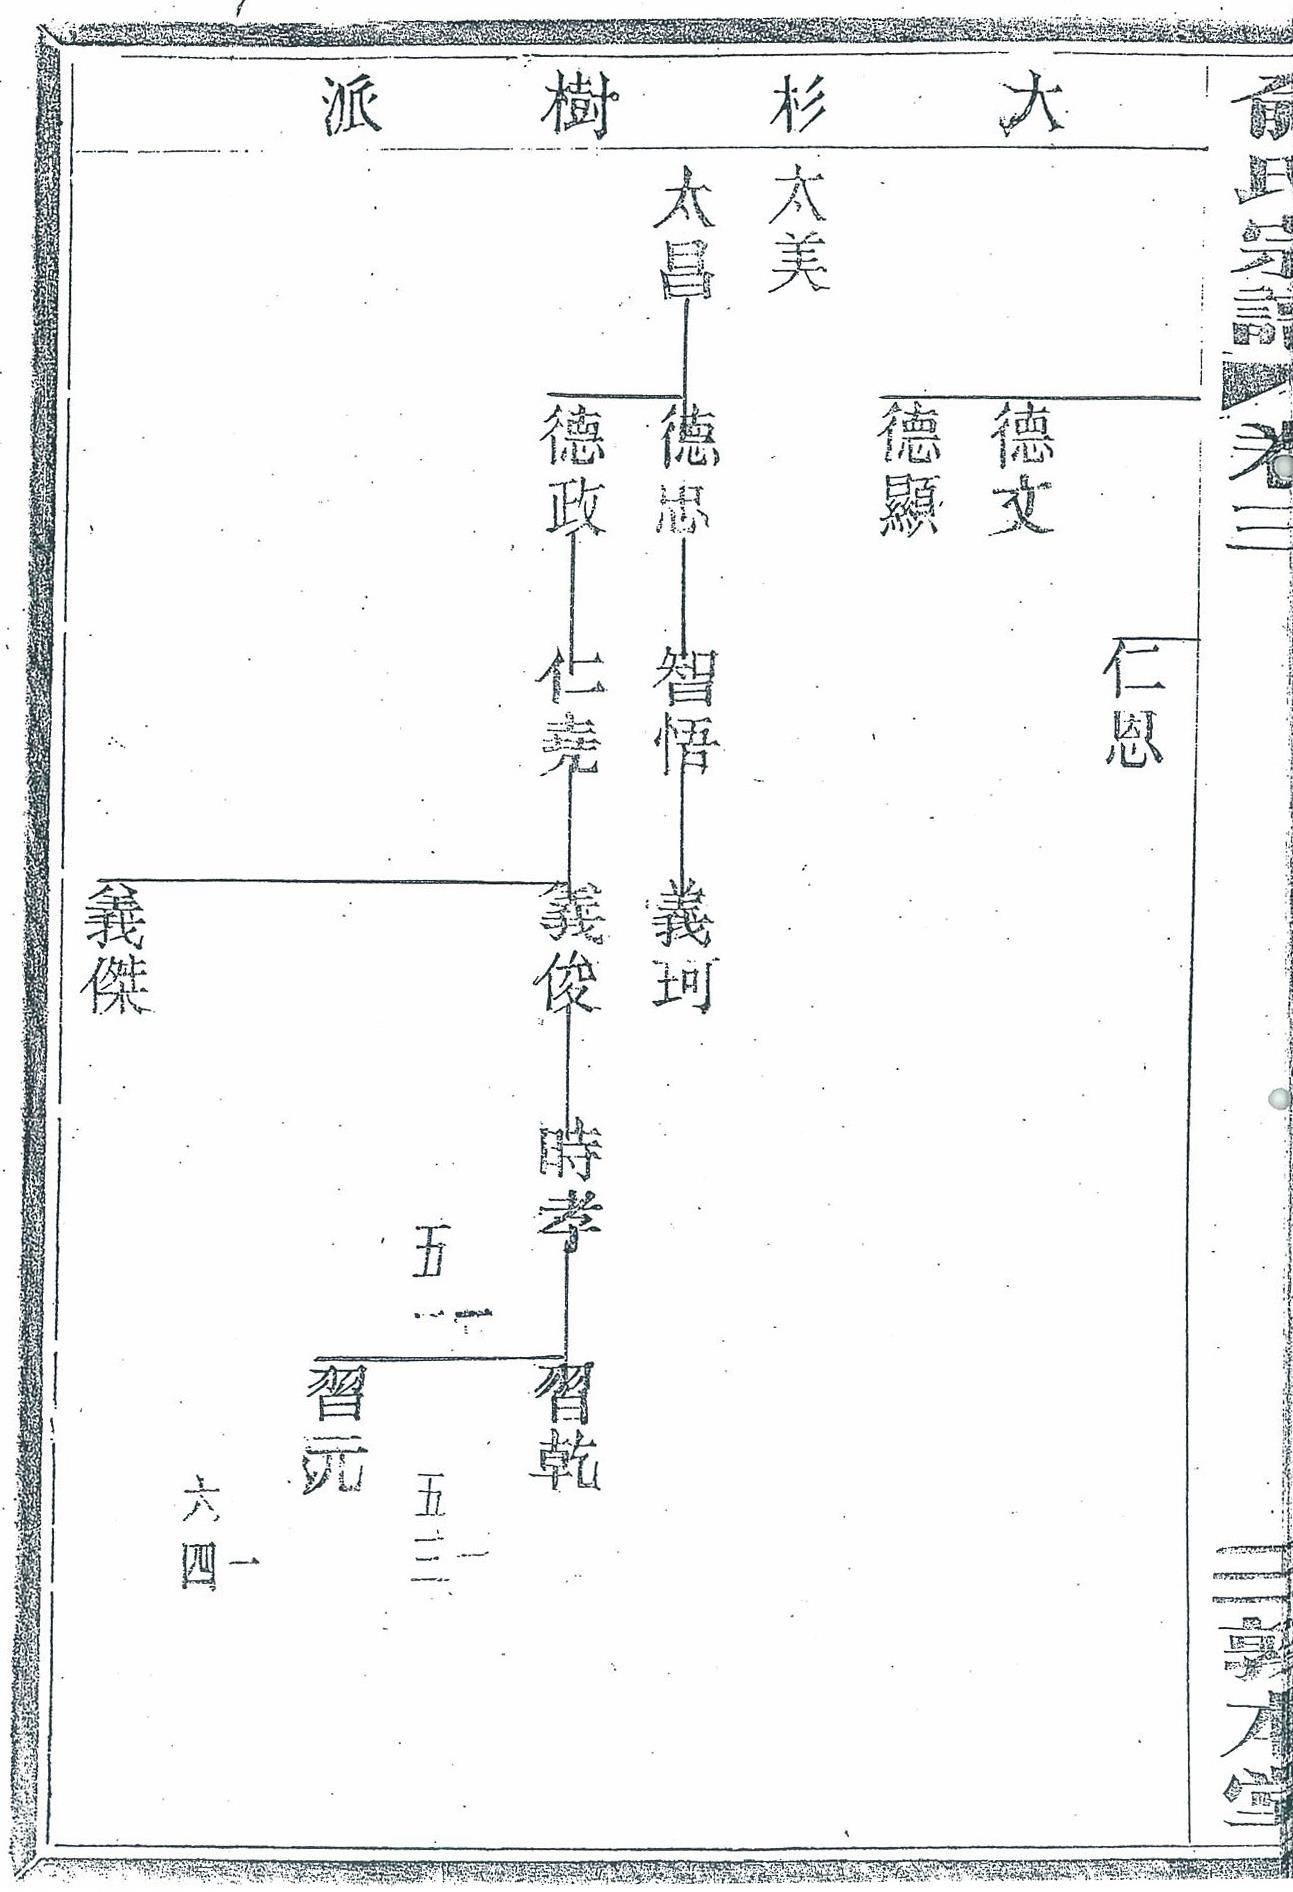 俞氏宗譜
卷三
三
敦本堂
大杉樹派
仁恩
德文
德顯
太美
太昌
德忠
智悟
義珂
德政
仁堯
義俊
時孝
習乾
五
五三一
習元
六四一
義傑